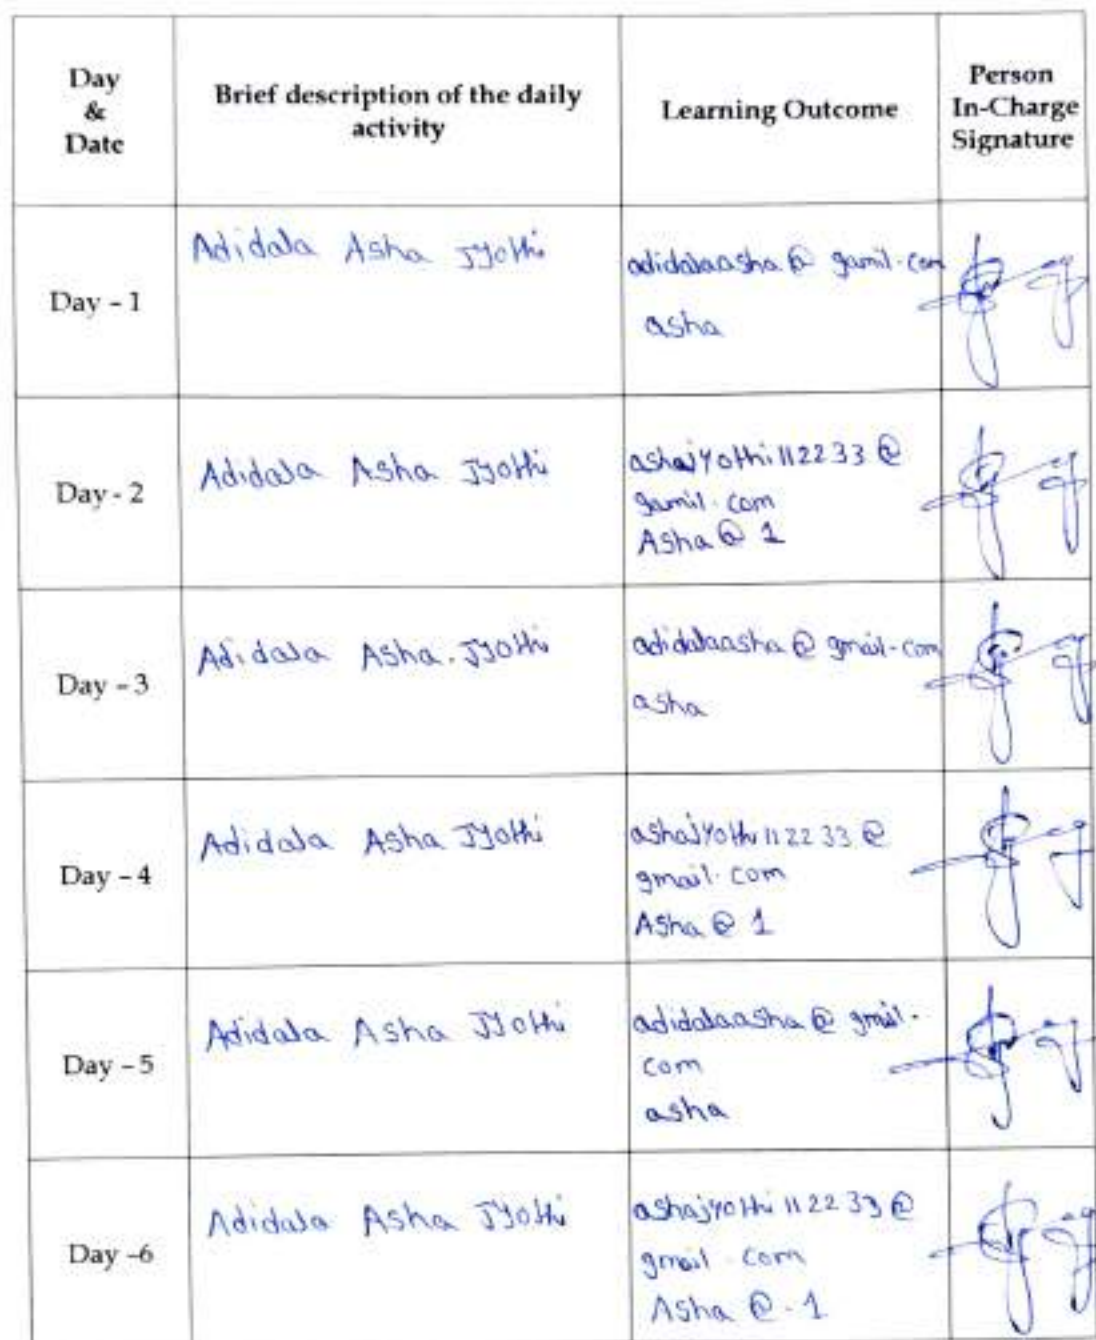 Day
&
Date
Brief description of the daily
activity
Learning Outcome
Person
In-Charge
Signature
Day – 1
Adidala Asha Jyothi
adidalaasha@gamil.com
asha
Day - 2
Adidala Asha Jyothi
ashajyothi112233@
gamil.com
Asha@1
Day – 3
Adidala Asha. Jyothi
adidalaasha@gmail.com
asha
Day – 4
Adidala Asha Jyothi
ashajyothi112233@
gmail.com
Asha@1
Day – 5
Adidala Asha Jyothi
adidalaasha@gmail.
com
asha
Day –6
Adidala Asha Jyothi
ashajyothi112233@
gmail.com
Asha@-1